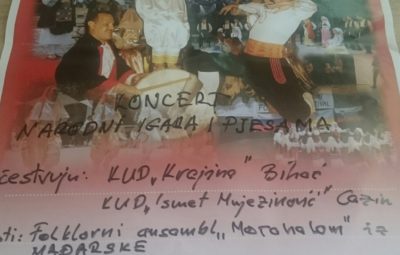 KONCERT
NARODNIH IGARA I PJESAMA
čestvuju: KUD „Krajina" Bihać
KUD „Ismet Mujezinović" Cazin
ti: Folklorni ansambl „Morahalom" iz
MAĐARSKE